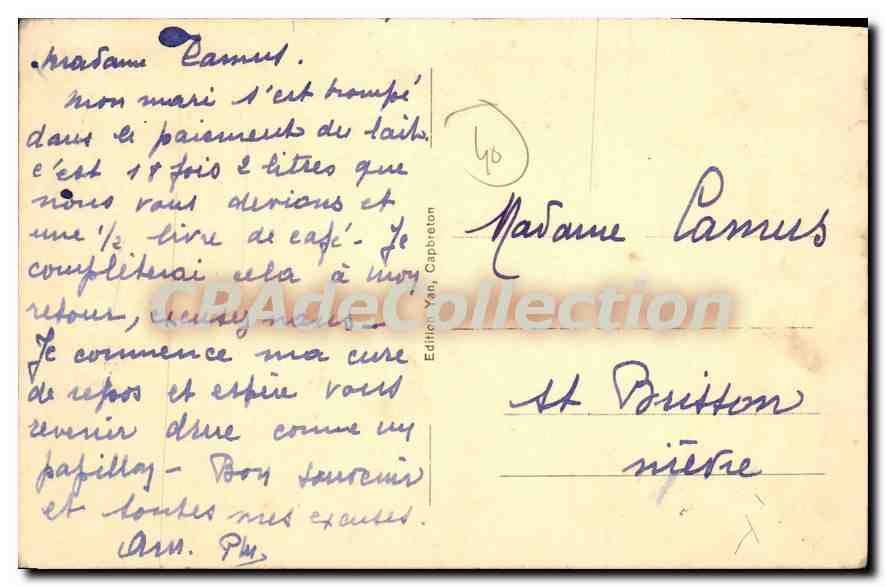 Madame Camus.
Mon mari s'est trompé
dans le paiement du lait
c'est 18 fois 2 litres que
nous vous devions et
une 1/2 livre de café - Je
compléterai cela à mon
retour, excusez nous -
Je commence ma cure
de repos et espère vous
revenir drue comme un
papillon - Bon souvenir
et toutes mes excuses.
Edition Yan, Capbreton
40
Madame Camus
St Brisson
nièvre
CPAdeCollection